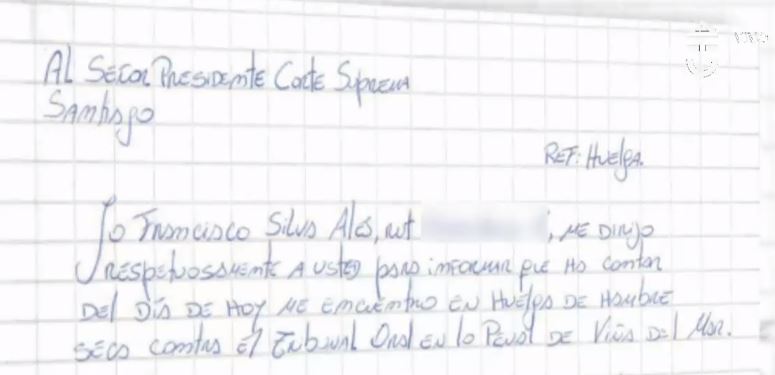 Al Señor Presidente Corte Suprema
Santiago
REF: Huelga.
Yo Francisco Silva Ales, rut , me dirijo
respetuosamente a usted para informar que ha contar
del día de hoy me encuentro en huelga de hambre
seca contra el Tribunal Oral en lo Penal de Viña del Mar.